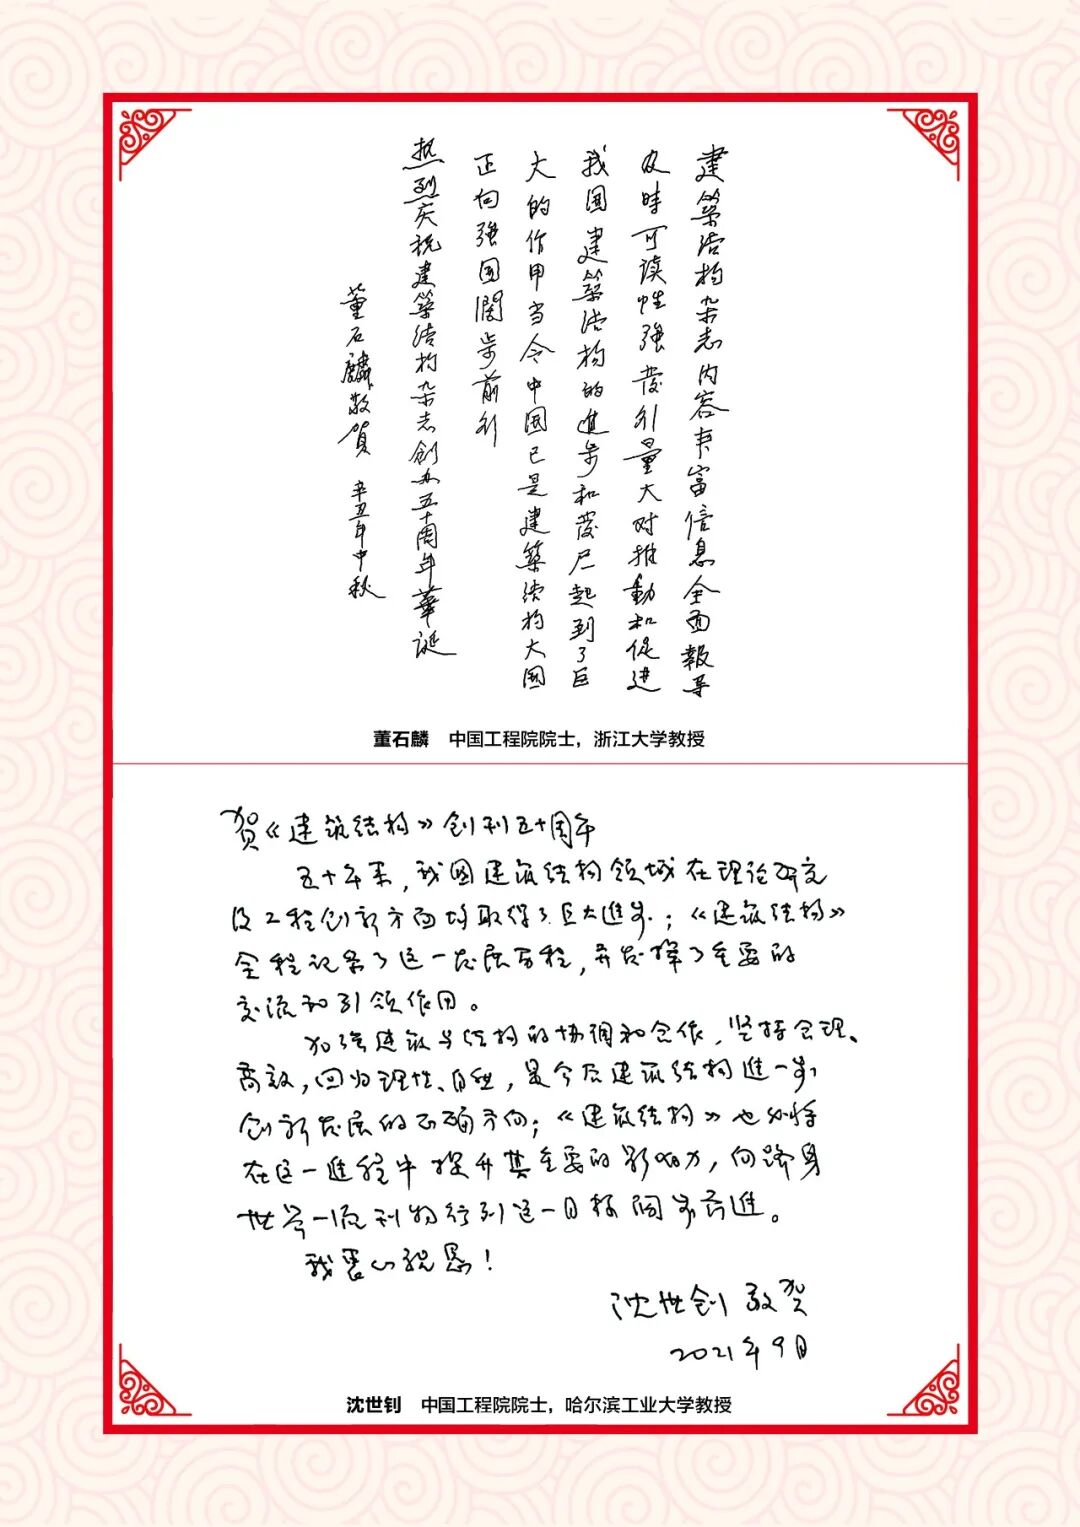 建築结构杂志内容丰富信息全面報导
及時可读性强發引量大对推動和促進
我国建築结构的進步和發展起到了巨
大的作用当今中国已是建築结构大国
正向强国阔步前行
热烈庆祝建築结构杂志创办五十周年華诞
董石麟敬賀 辛丑年中秋
董石麟 中国工程院院士，浙江大学教授
贺《建筑结构》创刊五十周年
五十年来，我国建筑结构领域在理论研究
及工程创新方面均取得了巨大進步；《建筑结构》
全程记录了这一发展历程，并发挥了重要的
交流和引领作用。
加强建筑与结构的协调和合作，坚持合理、
高效，回归理性、自然，是今后建筑结构進一步
创新发展的正确方向；《建筑结构》也必将
在这一進程中提升其重要的影响力，向跻身
世界一流刊物行列这一目标阔步前進。
我衷心祝愿！
沈世钊 敬贺
2021年9月
沈世钊 中国工程院院士，哈尔滨工业大学教授